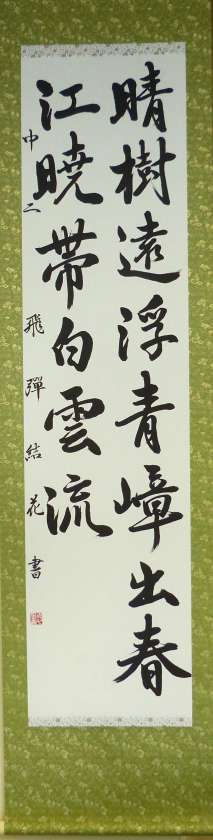 晴樹遠浮青嶂出春
江暁帯白雲流
中二 飛弾結花書